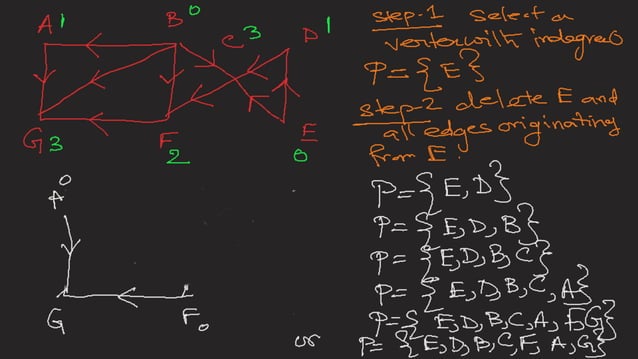 A 1
B 0
C 3
D 1
G 3
F 2
E 0
A 0
G
F 0
step-1 Select a
vertex with indegree 0
P={E}
step-2 delete E and
all edges originating
from E.
P={E,D}
P={E,D,B}
P={E,D,B,C}
P={E,D,B,C,A}
P={E,D,B,C,A,F,G}
or P={E,D,B,C,F,A,G}